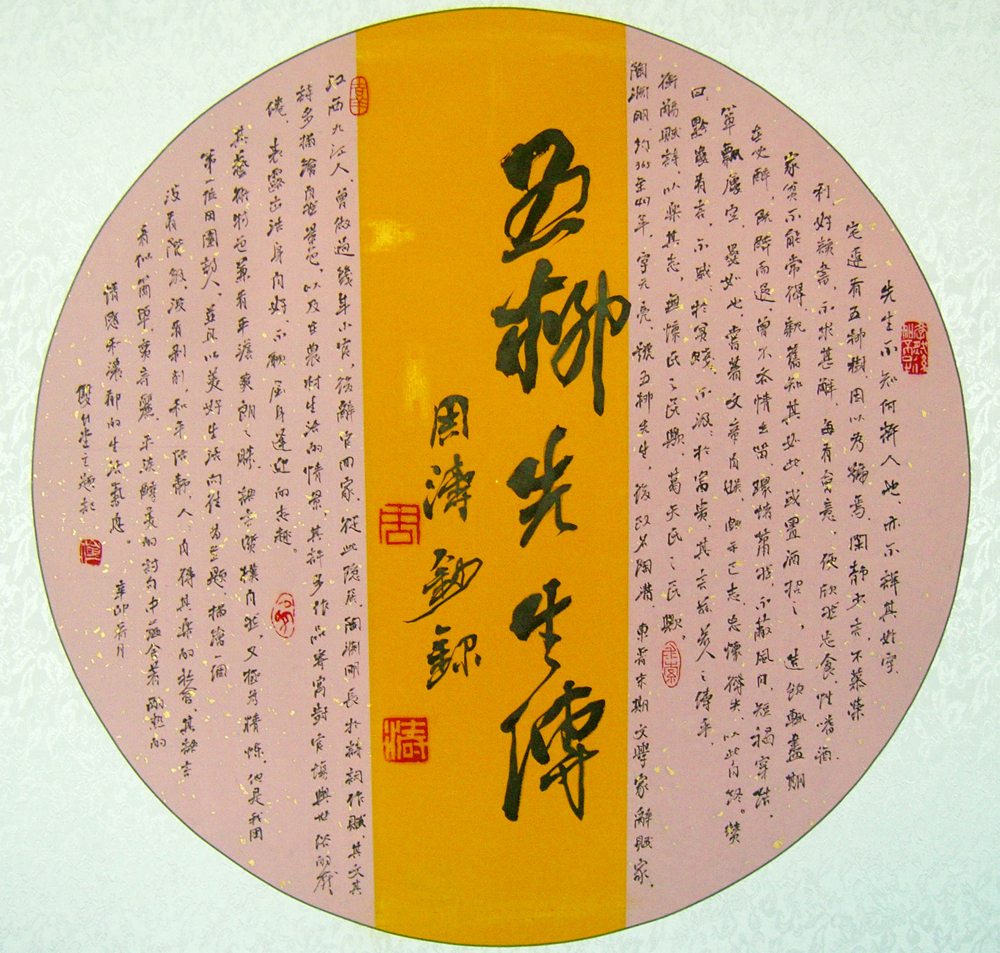 先生不知何許人也，亦不詳其姓字
宅邊有五柳樹因以為號焉，閑靜少言不慕榮
利好讀書，不求甚解，每有會意，便欣然忘食性嗜酒
家貧不能常得，親舊知其如此，或置酒招之，造飲輒盡期
在必醉，既醉而退，曾不吝情去留，環堵蕭然不蔽風日，短褐穿結，
簞瓢屢空，晏如也，常著文章自娛，頗示己志，忘懷得失，以此自終。贊
曰，黔婁有言，不戚戚於貧賤，不汲汲於富貴，其言茲若人之儔乎，
銜觴賦詩，以樂其志，無懷氏之民歟，葛天氏之民歟。
陶淵明，約365至427年，字元亮，號五柳先生，後改名陶潛，東晉末期文學家辭賦家，
五柳先生傳
周濤敬錄
江西九江人，曾做過幾年小官，後辭官回家，從此隱居，陶淵明長於詩詞作賦，其文其
詩多描繪自然景色，以及在農村生活的情景，其許多作品寄寓對官場與世俗的厭
倦，表露出潔身自好不願屈身逢迎的志趣。
其藝術特色兼有平淡爽朗之勝，語言質樸自然，又極為精煉，他是我國
第一位田園詩人，並且以美好生活向往為主題，描繪一個
沒有階級，沒有剝削，和平恬靜人，自得其樂的社會，其語言
看似簡單實奇麗，平淡醇美的詩句中蘊含著熾熱的
情感和濃郁的生活氣息。
辛卯